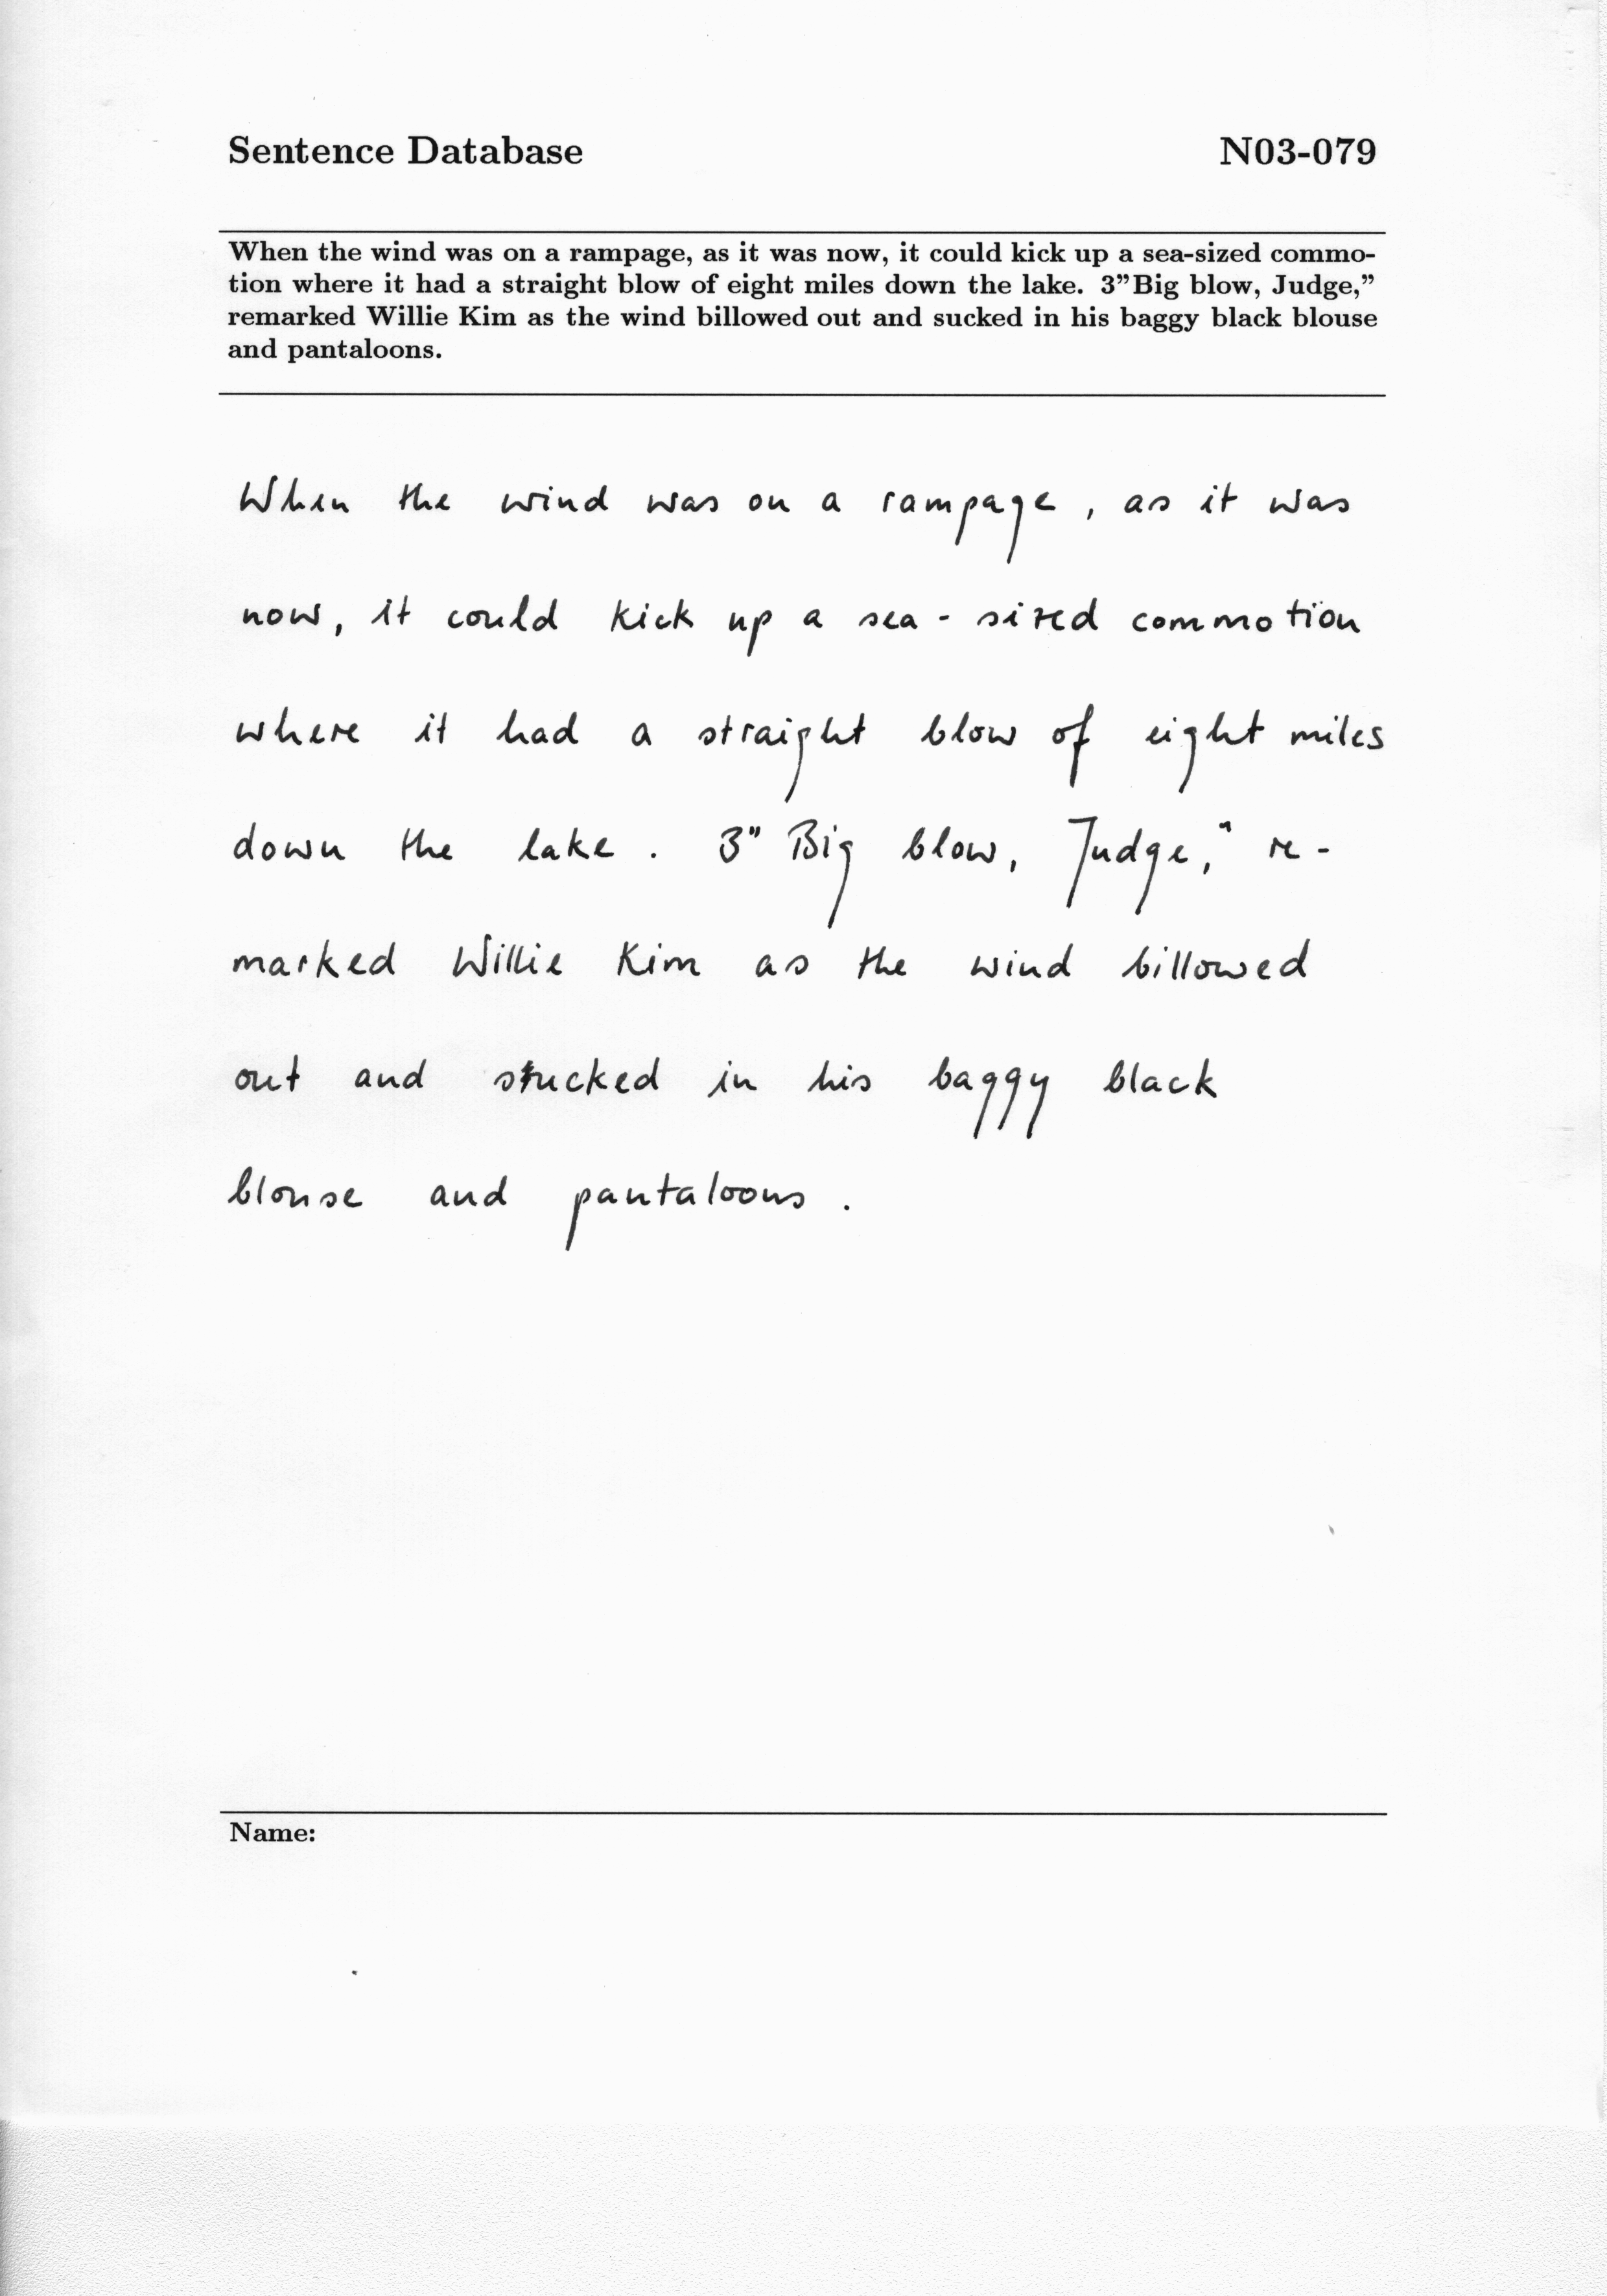 Sentence Database N03-079
When the wind was on a rampage, as it was now, it could kick up a sea-sized commo-
tion where it had a straight blow of eight miles down the lake. 3”Big blow, Judge,”
remarked Willie Kim as the wind billowed out and sucked in his baggy black blouse
and pantaloons.
When the wind was on a rampage, as it was
now, it could kick up a sea-sized commotion
where it had a straight blow of eight miles
down the lake. 3" Big blow, Judge," re-
marked Willie Kim as the wind billowed
out and stucked in his baggy black
blouse and pantaloons.
Name: